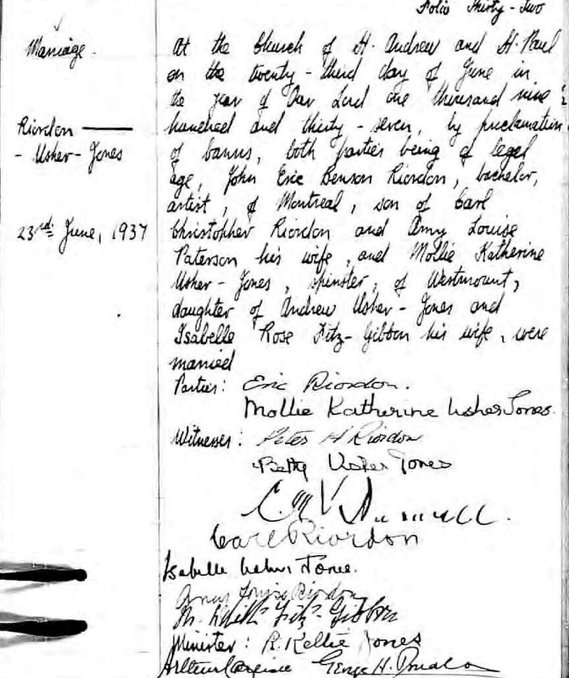 Folio Thirty-Two
Marriage.
Riordon ——
- Usher-Jones
23rd June, 1937
At the Church of St. Andrew and St. Paul
on the twenty-third day of June in
the year of Our Lord one thousand nine
hundred and thirty-seven, by proclamation
of banns, both parties being of legal
age, John Eric Benson Riordon, bachelor,
artist, of Montreal, son of Carl
Christopher Riordon and Amy Louise
Paterson his wife, and Mollie Katherine
Usher-Jones, spinster, of Westmount,
daughter of Andrew Usher-Jones and
Isabelle Rose Fitz-Gibbon his wife, were
married
Parties: Eric Riordon.
Mollie Katherine Usher Jones.
Witnesses: Peter H Riordon
Betty Usher Jones
Carl Riordon
Isabelle Usher Jones.
Amy Louise Riordon
Fitz-Gibbon
Minister: R. Kellie Jones
George H.